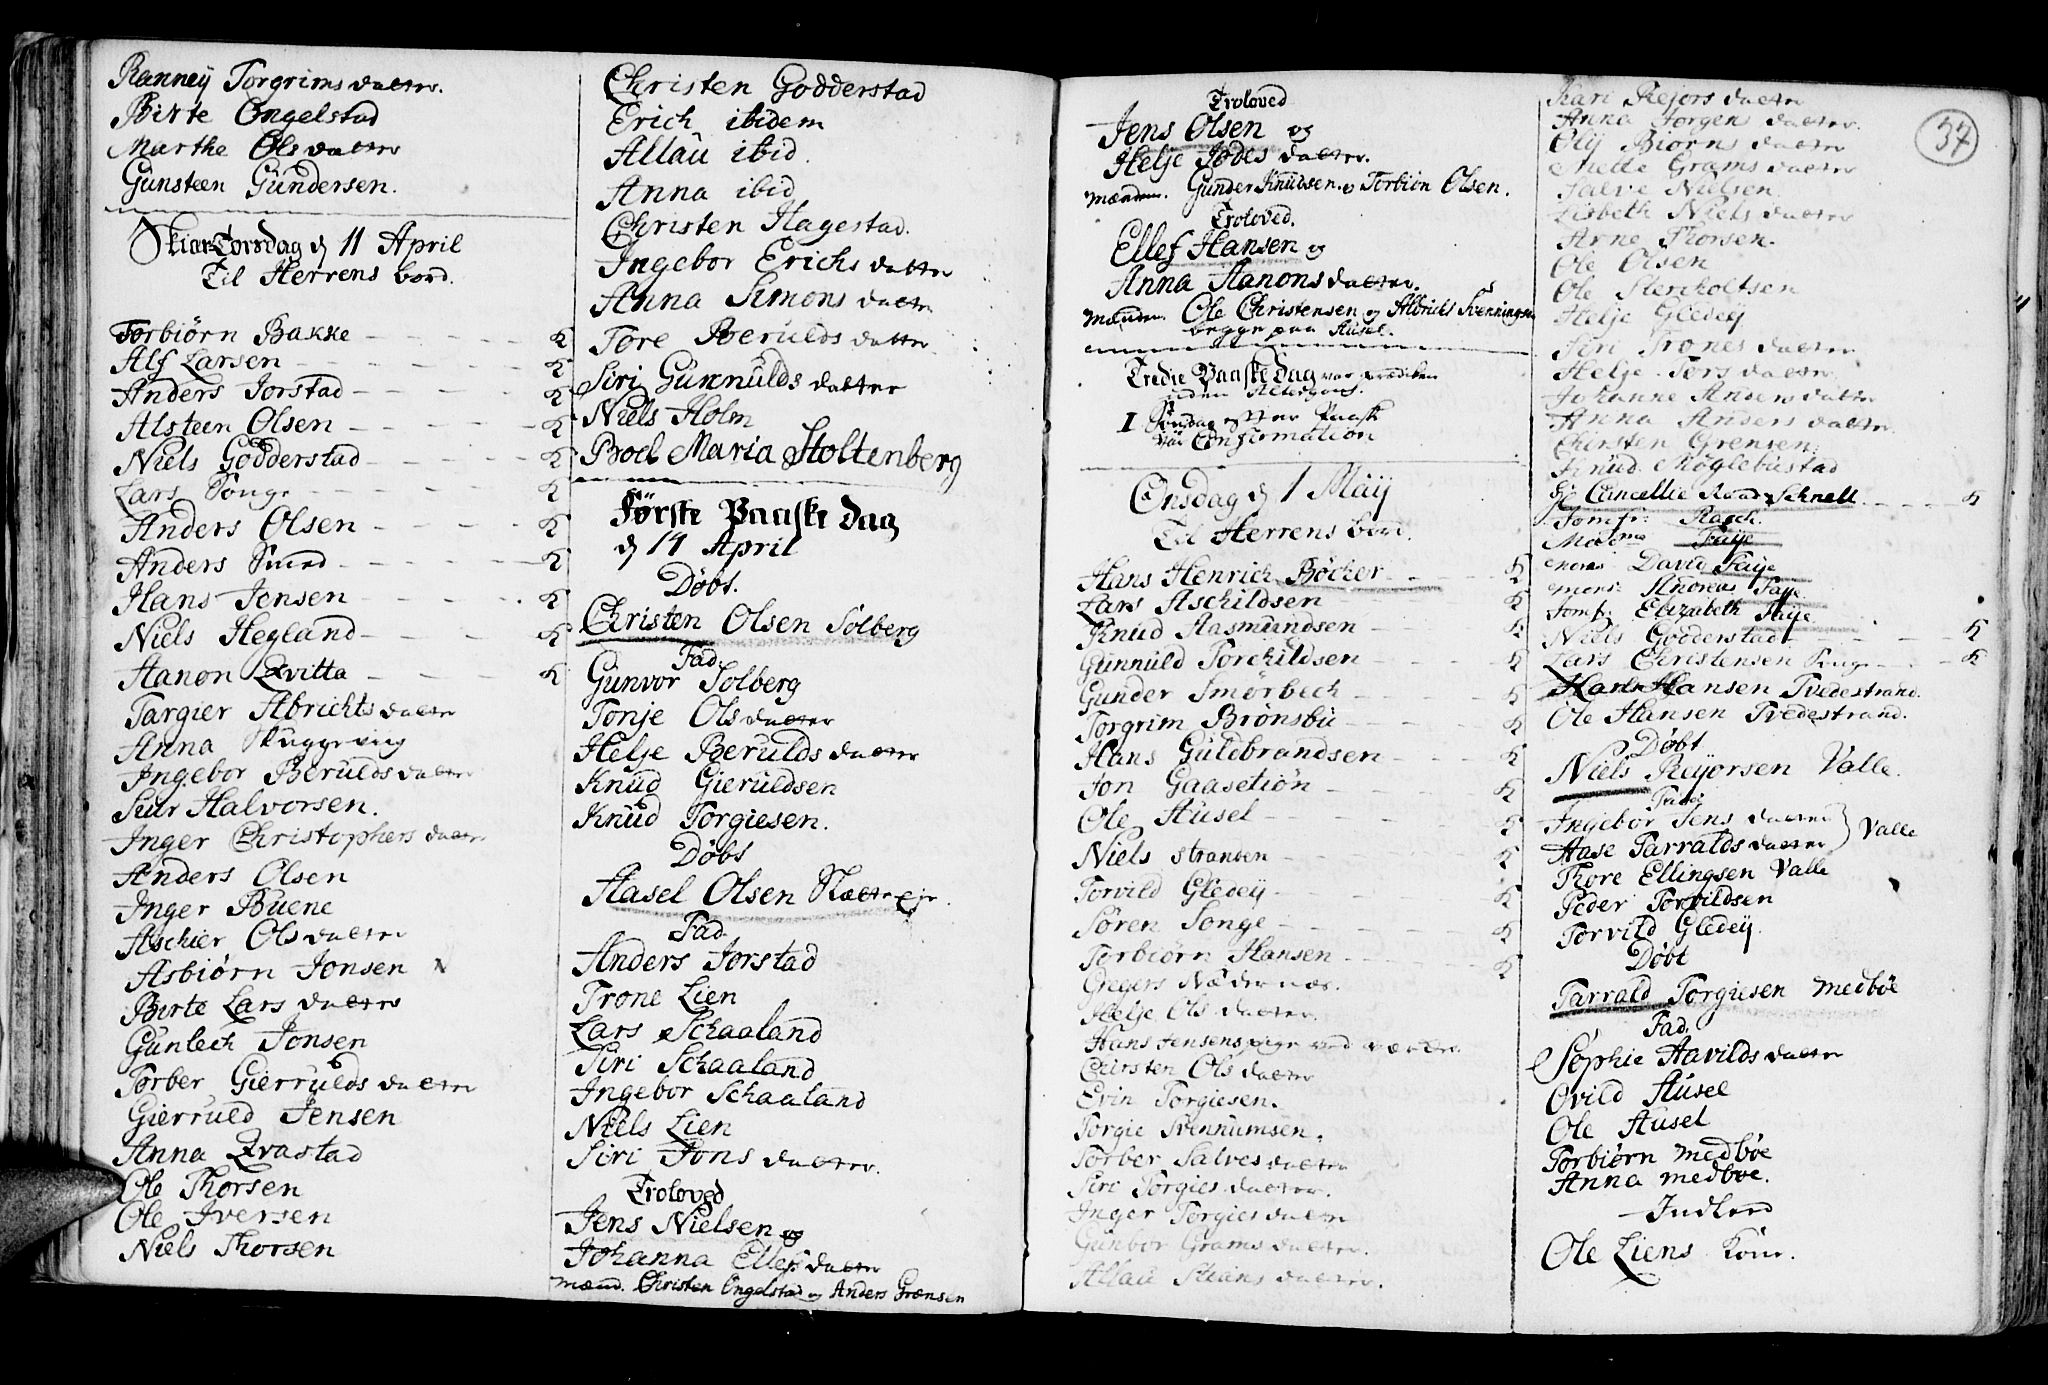 Ranneÿ Torgrims datter.
Birte Ongelstad
Marthe Ols datter
Gunsteen Gundersen.
Skiær Torsdag d 11 April
Til Herrens bord.
Torbiørn Bakke - - - - K
Alf Larsen - - - - K
Anders Jorstad - - - - K
Alsteen Olsen - - - - K
Niels Godderstad - - - - K
Lars Songe - - - - K
Anders Olsen - - - - K
Anders Smed - - - - K
Hans Jensen - - - - K
Niels Hegland - - - - K
Aanon Qvitta - - - - K
Targier Albrichts datter
Anna Skuggevig
Ingebor Berulds datter
Siur Halvorsen.
Inger Christophers datter
Anders Olsen
Inger Buene
Aschier Ols datter
Asbiørn Jonsen
Birte Lars datter
Gunlech Jonsen
Torber Gierrulds datter
Gierruld Jensen
Anna Qvastad
Ole Thorsen
Ole Iversen
Niels Thorsen
Christen Godderstad
Erich ibidem
Allau ibid.
Anna ibid
Christen Hagestad.
Ingebor Erichs datter
Anna Simons datter
Tore Berulds datter
Siri Gunnulds datter
Niels Holm
Boel Maria Stoltenberg
Første Paaske dag
d 14 April
Døbt.
Christen Olsen Solberg
Fad
Gunvor Solberg
Tonje Ols datter
Helje Berulds datter
Knud Gieruldsen
Knud Torgiesen.
Døbt
Aasel Olsen
Fad
Anders Jorstad
Trone Lien
Lars Schaaland
Siri Schaaland
Ingebor Schaaland
Niels Lien
Siri Jons datter.
Troloved
Jens Nielsen og
Johanna Ellefs datter
mænd. Christen Ongelstad og Anders Grænsen
Troloved
Jens Olsen og
Helje Jodes datter.
mændene. Gunder Knudsen. og Torbiøn Olsen.
Troloved.
Ellef Hansen og
Anna Aanons datter.
mændene. Ole Christensen og Albricht Svenningsen
begge paa Ausel.
Tredie Paaske dag var prediken
uden Altergang.
1 Søndag efter Paaske
var Confirmation
Onsdag d 1 Maÿ
Til Herrens bord.
Hans Henrich Böcher - - - K
Lars Aschildsen - - - K
Knud Aasmundsen - - - K
Gunnuld Torchildsen - - - K
Gunder Smørbech - - - K
Torgrim Brønsbu - - - K
Hans Guldbrandsen - - - K
Jon Gaasetiøn - - - K
Ole Ausel - - - K
Niels Stranden - - - K
Torvild Gledeÿ - - - K
Søren Songe - - - K
Torbiørn Hansen - - - K
Gregers Næder næs.
Helje Ols datter.
Hans Jensens pige ved værket.
Chirsten Ols datter
Evin Torgiesen.
Torgie Svennumsen.
Torber Salves datter
Siri Torgies datter.
Inger Torgies datter
Gunbor Grams datter.
Allau Steans datter.
37
Kari Rejors datter
Anna Jorgens datter
Olÿ Biørns datter
Mette Grams datter
Salve Nielsen
Lisbeth Niels datter
Arne Thorsen.
Ole Olsen
Ole Stercholtsen
Helje Gledeÿ
Siri Trones datter
Helje Tors datter
Johanne Anders datter
Anna Anders datter
Chirsten Grensen.
Knud Møglebustad
Cancellie Raad Schnell - - - K
Jomfr: Rasch.
Madme Faÿe
mons: David Faÿe
mons: Andreas Faÿe.
Jomf: Elizabeth Faÿe
Niels Godderstad - - - K
Lars Christensen Songe - - - K
Hans Hansen Tvedestrand.
Ole Hansen Tvedestrand.
Døbt
Niels Reÿorsen Valle.
Ingebor Jens datter
Aase Tarralds datter } Valle
Thore Ellingsen Valle
Peder Torvildsen
Torvild Gledeÿ.
Døbt
Tarrald Torgiesen medbøe
Fad.
Sophie Aavilds datter
Ovild Ausel
Ole Ausel
Torbiørn medbøe
Anna medbøe.
Indled
Ole Liens Kone.